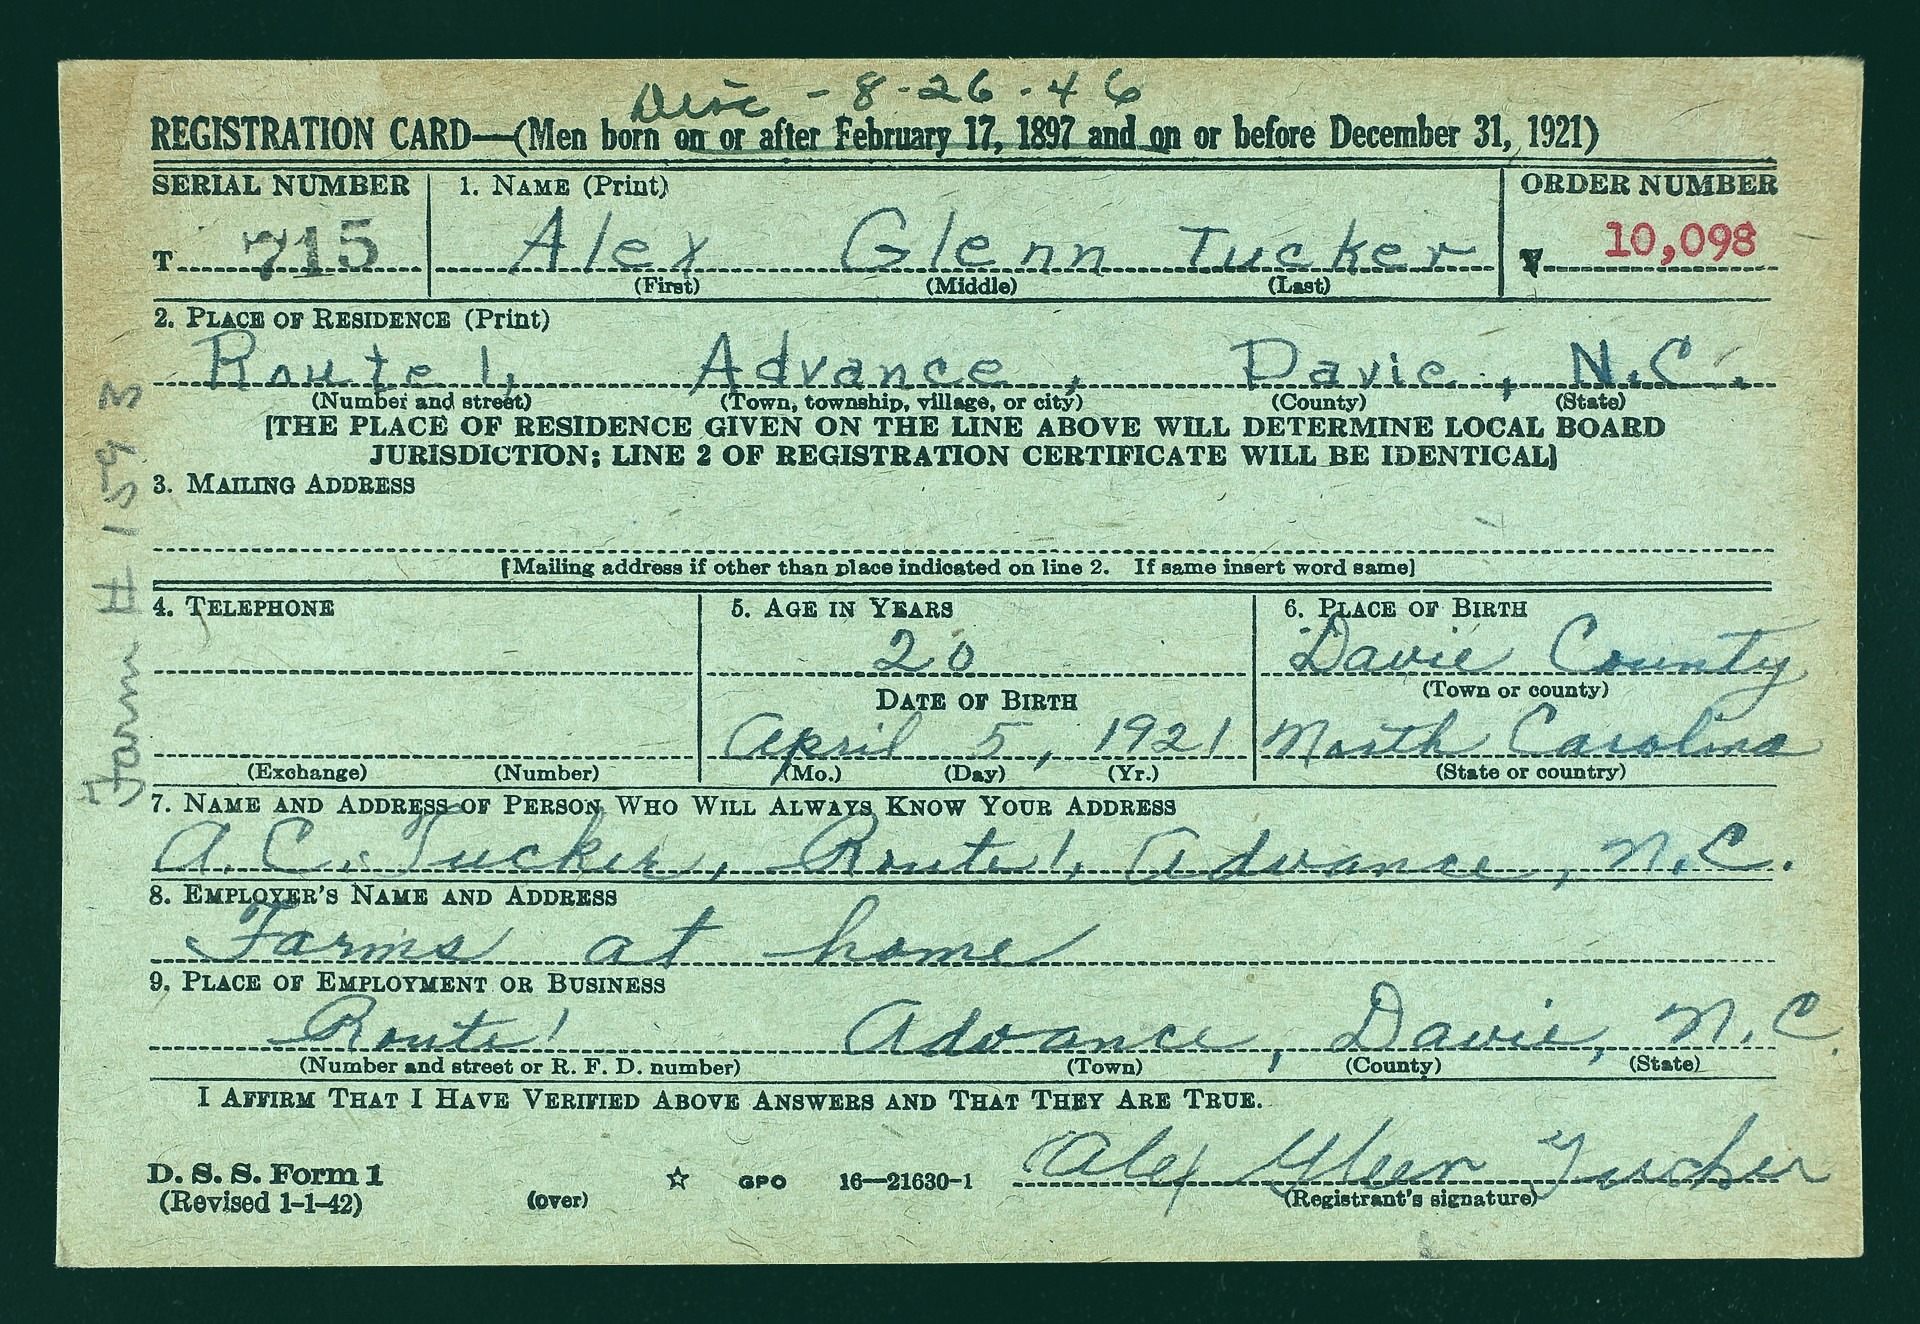 Disc - 8-26-46
REGISTRATION CARD—(Men born on or after February 17, 1897 and on or before December 31, 1921)
SERIAL NUMBER 1. NAME (Print) ORDER NUMBER
T 715 Alex Glenn Tucker 10,098
(First) (Middle) (Last)
2. PLACE OF RESIDENCE (Print)
Route 1, Advance, Davie, N.C.
(Number and street) (Town, township, village, or city) (County) (State)
[THE PLACE OF RESIDENCE GIVEN ON THE LINE ABOVE WILL DETERMINE LOCAL BOARD
JURISDICTION; LINE 2 OF REGISTRATION CERTIFICATE WILL BE IDENTICAL]
3. MAILING ADDRESS
[Mailing address if other than place indicated on line 2. If same insert word same]
4. TELEPHONE 5. AGE IN YEARS 6. PLACE OF BIRTH
20 Davie County
DATE OF BIRTH (Town or county)
April 5, 1921 North Carolina
(Exchange) (Number) (Mo.) (Day) (Yr.) (State or country)
7. NAME AND ADDRESS OF PERSON WHO WILL ALWAYS KNOW YOUR ADDRESS
A. C. Tucker, Route 1, Advance, N.C.
8. EMPLOYER'S NAME AND ADDRESS
Farms at home
9. PLACE OF EMPLOYMENT OR BUSINESS
Route 1 Advance, Davie, N.C.
(Number and street or R. F. D. number) (Town) (County) (State)
I AFFIRM THAT I HAVE VERIFIED ABOVE ANSWERS AND THAT THEY ARE TRUE.
Alex Glenn Tucker
D. S. S. Form 1
(Revised 1-1-42) (over) ☆ GPO 16—21630-1 (Registrant's signature)
Farm # 1593